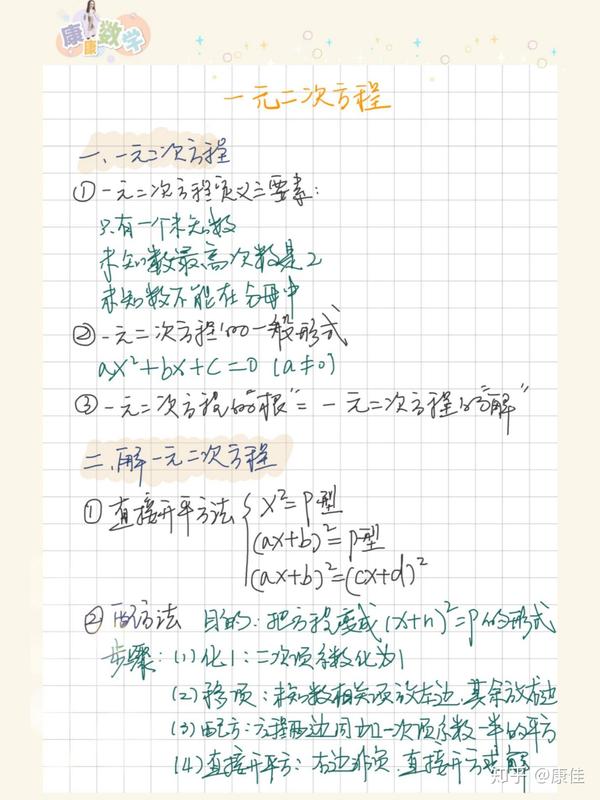 康康数学
一元二次方程
一、一元二次方程
①一元二次方程定义三要素:
只有一个未知数
未知数最高次数是2
未知数不能在分母中
②一元二次方程的一般形式
ax²+bx+c=0 (a≠0)
③一元二次方程的“根”=一元二次方程的“解”
二、解一元二次方程
①直接开平方法{x²=p型
(ax+b)²=p型
(ax+b)²=(cx+d)²
②配方法 目的:把方程变成(x+n)²=p的形式
步骤:(1)化1:二次项系数化为1
(2)移项:未知数相关项放左边,其余放右边
(3)配方:方程两边同加一次项系数一半的平方
(4)直接开平方:右边非负,直接开方求解
知乎 @康佳